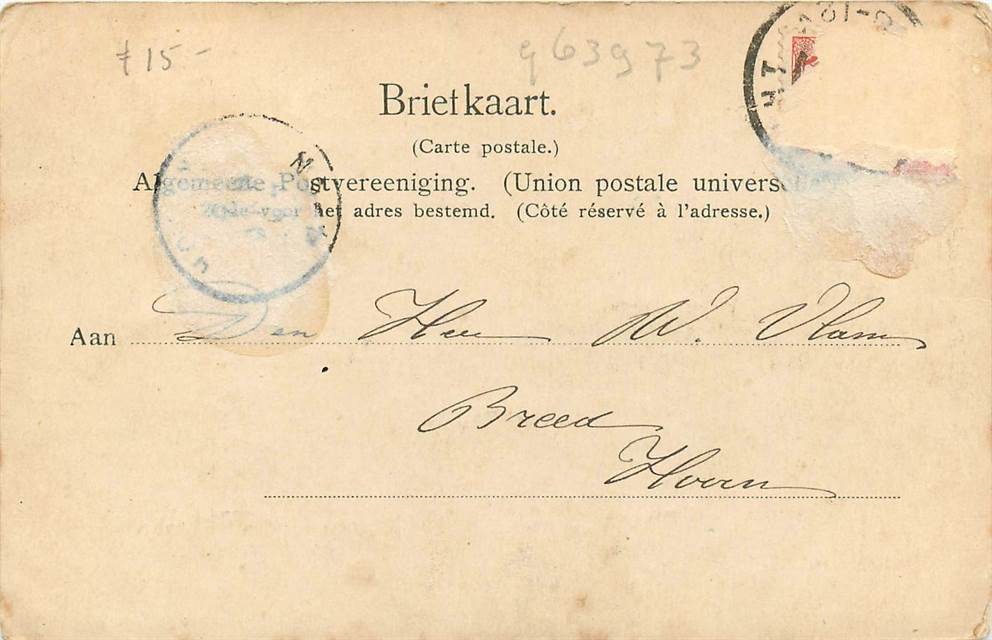 f 15 -
963973
Briefkaart.
(Carte postale.)
Algemeene Postvereeniging. (Union postale universelle
Zijde voor het adres bestemd. (Côté réservé à l'adresse.)
Aan Den Heer W. Vlam
Breed
Hoorn